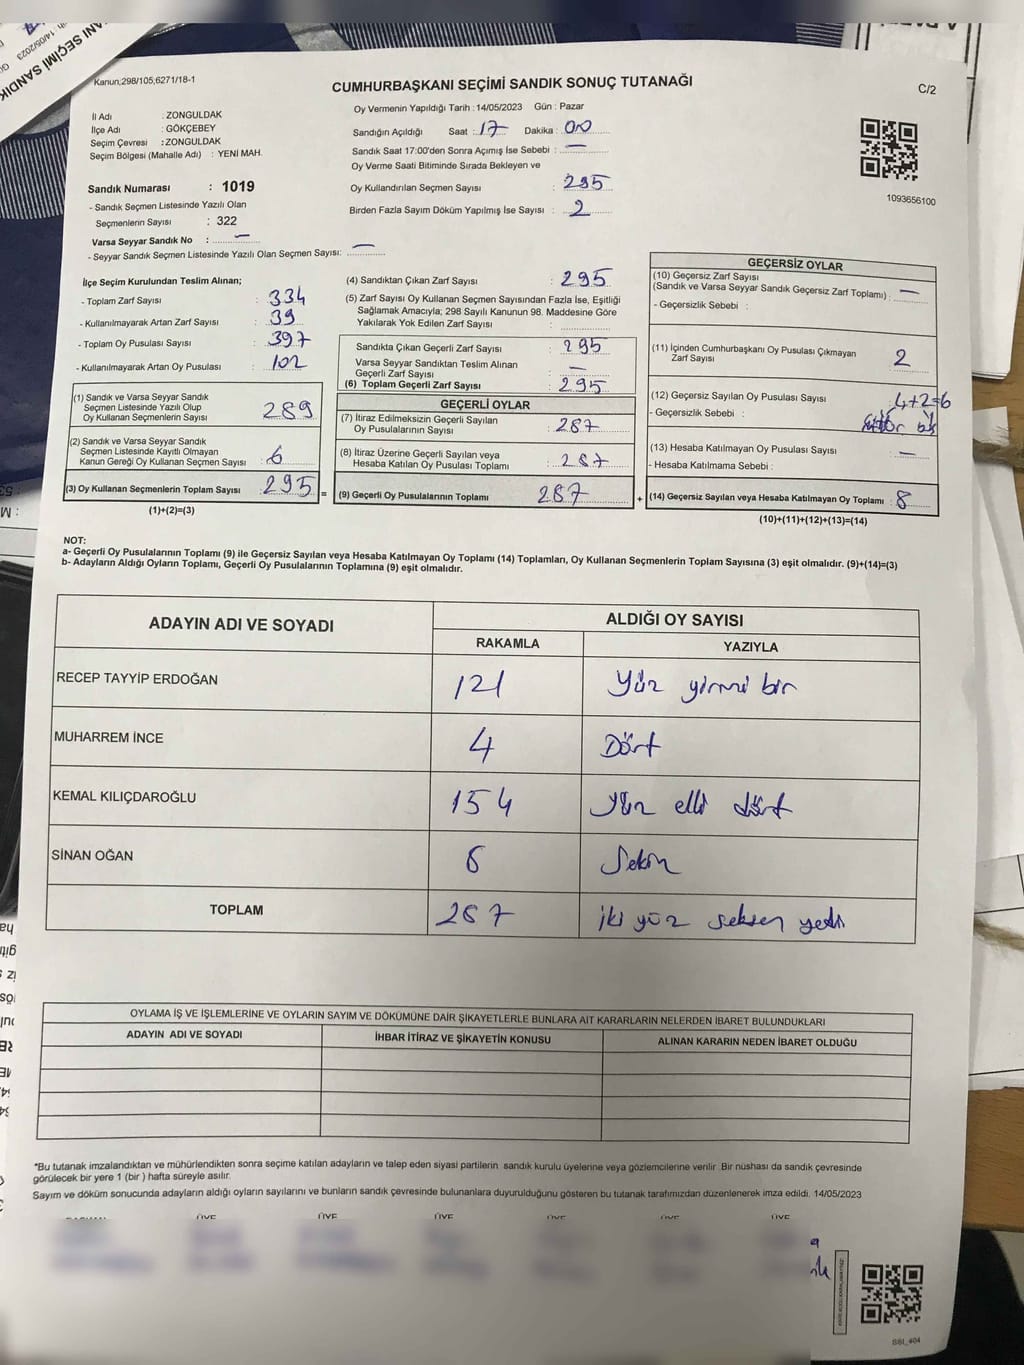 Kanun;298/105;6271/18-1
CUMHURBAŞKANI SEÇİMİ SANDIK SONUÇ TUTANAĞI
C/2
İl Adı : ZONGULDAK
İlçe Adı : GÖKÇEBEY
Seçim Çevresi : ZONGULDAK
Seçim Bölgesi (Mahalle Adı) : YENİ MAH.
Sandık Numarası : 1019
- Sandık Seçmen Listesinde Yazılı Olan
Seçmenlerin Sayısı : 322
Varsa Seyyar Sandık No : —
- Seyyar Sandık Seçmen Listesinde Yazılı Olan Seçmen Sayısı: —
Oy Vermenin Yapıldığı Tarih : 14/05/2023 Gün : Pazar
Sandığın Açıldığı Saat : 17 Dakika : 00
Sandık Saat 17:00'den Sonra Açımış İse Sebebi : —
Oy Verme Saati Bitiminde Sırada Bekleyen ve
Oy Kullandırılan Seçmen Sayısı : 295
Birden Fazla Sayım Döküm Yapılmış İse Sayısı : 2
1093656100
İlçe Seçim Kurulundan Teslim Alınan;
- Toplam Zarf Sayısı : 334
- Kullanılmayarak Artan Zarf Sayısı : 39
- Toplam Oy Pusulası Sayısı : 397
- Kullanılmayarak Artan Oy Pusulası : 102
(1) Sandık ve Varsa Seyyar Sandık
Seçmen Listesinde Yazılı Olup
Oy Kullanan Seçmenlerin Sayısı : 289
(2) Sandık ve Varsa Seyyar Sandık
Seçmen Listesinde Kayıtlı Olmayan
Kanun Gereği Oy Kullanan Seçmen Sayısı : 6
(3) Oy Kullanan Seçmenlerin Toplam Sayısı : 295 =
(1)+(2)=(3)
(4) Sandıktan Çıkan Zarf Sayısı : 295
(5) Zarf Sayısı Oy Kullanan Seçmen Sayısından Fazla İse, Eşitliği
Sağlamak Amacıyla; 298 Sayılı Kanunun 98. Maddesine Göre
Yakılarak Yok Edilen Zarf Sayısı :
Sandıkta Çıkan Geçerli Zarf Sayısı : 295
Varsa Seyyar Sandıktan Teslim Alınan
Geçerli Zarf Sayısı : —
(6) Toplam Geçerli Zarf Sayısı : 295
GEÇERLİ OYLAR
(7) İtiraz Edilmeksizin Geçerli Sayılan
Oy Pusulalarının Sayısı : 287
(8) İtiraz Üzerine Geçerli Sayılan veya
Hesaba Katılan Oy Pusulası Toplamı : 287
(9) Geçerli Oy Pusulalarının Toplamı 287 +
GEÇERSİZ OYLAR
(10) Geçersiz Zarf Sayısı
(Sandık ve Varsa Seyyar Sandık Geçersiz Zarf Toplamı) : —
- Geçersizlik Sebebi :
(11) İçinden Cumhurbaşkanı Oy Pusulası Çıkmayan
Zarf Sayısı 2
(12) Geçersiz Sayılan Oy Pusulası Sayısı : 4+2=6
- Geçersizlik Sebebi :
(13) Hesaba Katılmayan Oy Pusulası Sayısı : —
- Hesaba Katılmama Sebebi :
(14) Geçersiz Sayılan veya Hesaba Katılmayan Oy Toplamı : 8
(10)+(11)+(12)+(13)=(14)
NOT:
a- Geçerli Oy Pusulalarının Toplamı (9) ile Geçersiz Sayılan veya Hesaba Katılmayan Oy Toplamı (14) Toplamları, Oy Kullanan Seçmenlerin Toplam Sayısına (3) eşit olmalıdır. (9)+(14)=(3)
b- Adayların Aldığı Oyların Toplamı, Geçerli Oy Pusulalarının Toplamına (9) eşit olmalıdır.
ADAYIN ADI VE SOYADI
ALDIĞI OY SAYISI
RAKAMLA YAZIYLA
RECEP TAYYİP ERDOĞAN 121 Yüz yirmi bir
MUHARREM İNCE 4 Dört
KEMAL KILIÇDAROĞLU 154 Yüz elli dört
SİNAN OĞAN 8 Sekiz
TOPLAM 287 iki yüz seksen yedi
OYLAMA İŞ VE İŞLEMLERİNE VE OYLARIN SAYIM VE DÖKÜMÜNE DAİR ŞİKAYETLERLE BUNLARA AİT KARARLARIN NELERDEN İBARET BULUNDUKLARI
ADAYIN ADI VE SOYADI İHBAR İTİRAZ VE ŞİKAYETİN KONUSU ALINAN KARARIN NEDEN İBARET OLDUĞU
*Bu tutanak imzalandıktan ve mühürlendikten sonra seçime katılan adayların ve talep eden siyasi partilerin sandık kurulu üyelerine veya gözlemcilerine verilir. Bir nüshası da sandık çevresinde
görülecek bir yere 1 (bir) hafta süreyle asılır.
Sayım ve döküm sonucunda adayların aldığı oyların sayılarını ve bunların sandık çevresinde bulunanlara duyurulduğunu gösteren bu tutanak tarafımızdan düzenlenerek imza edildi. 14/05/2023
ÜYE ÜYE ÜYE ÜYE ÜYE ÜYE